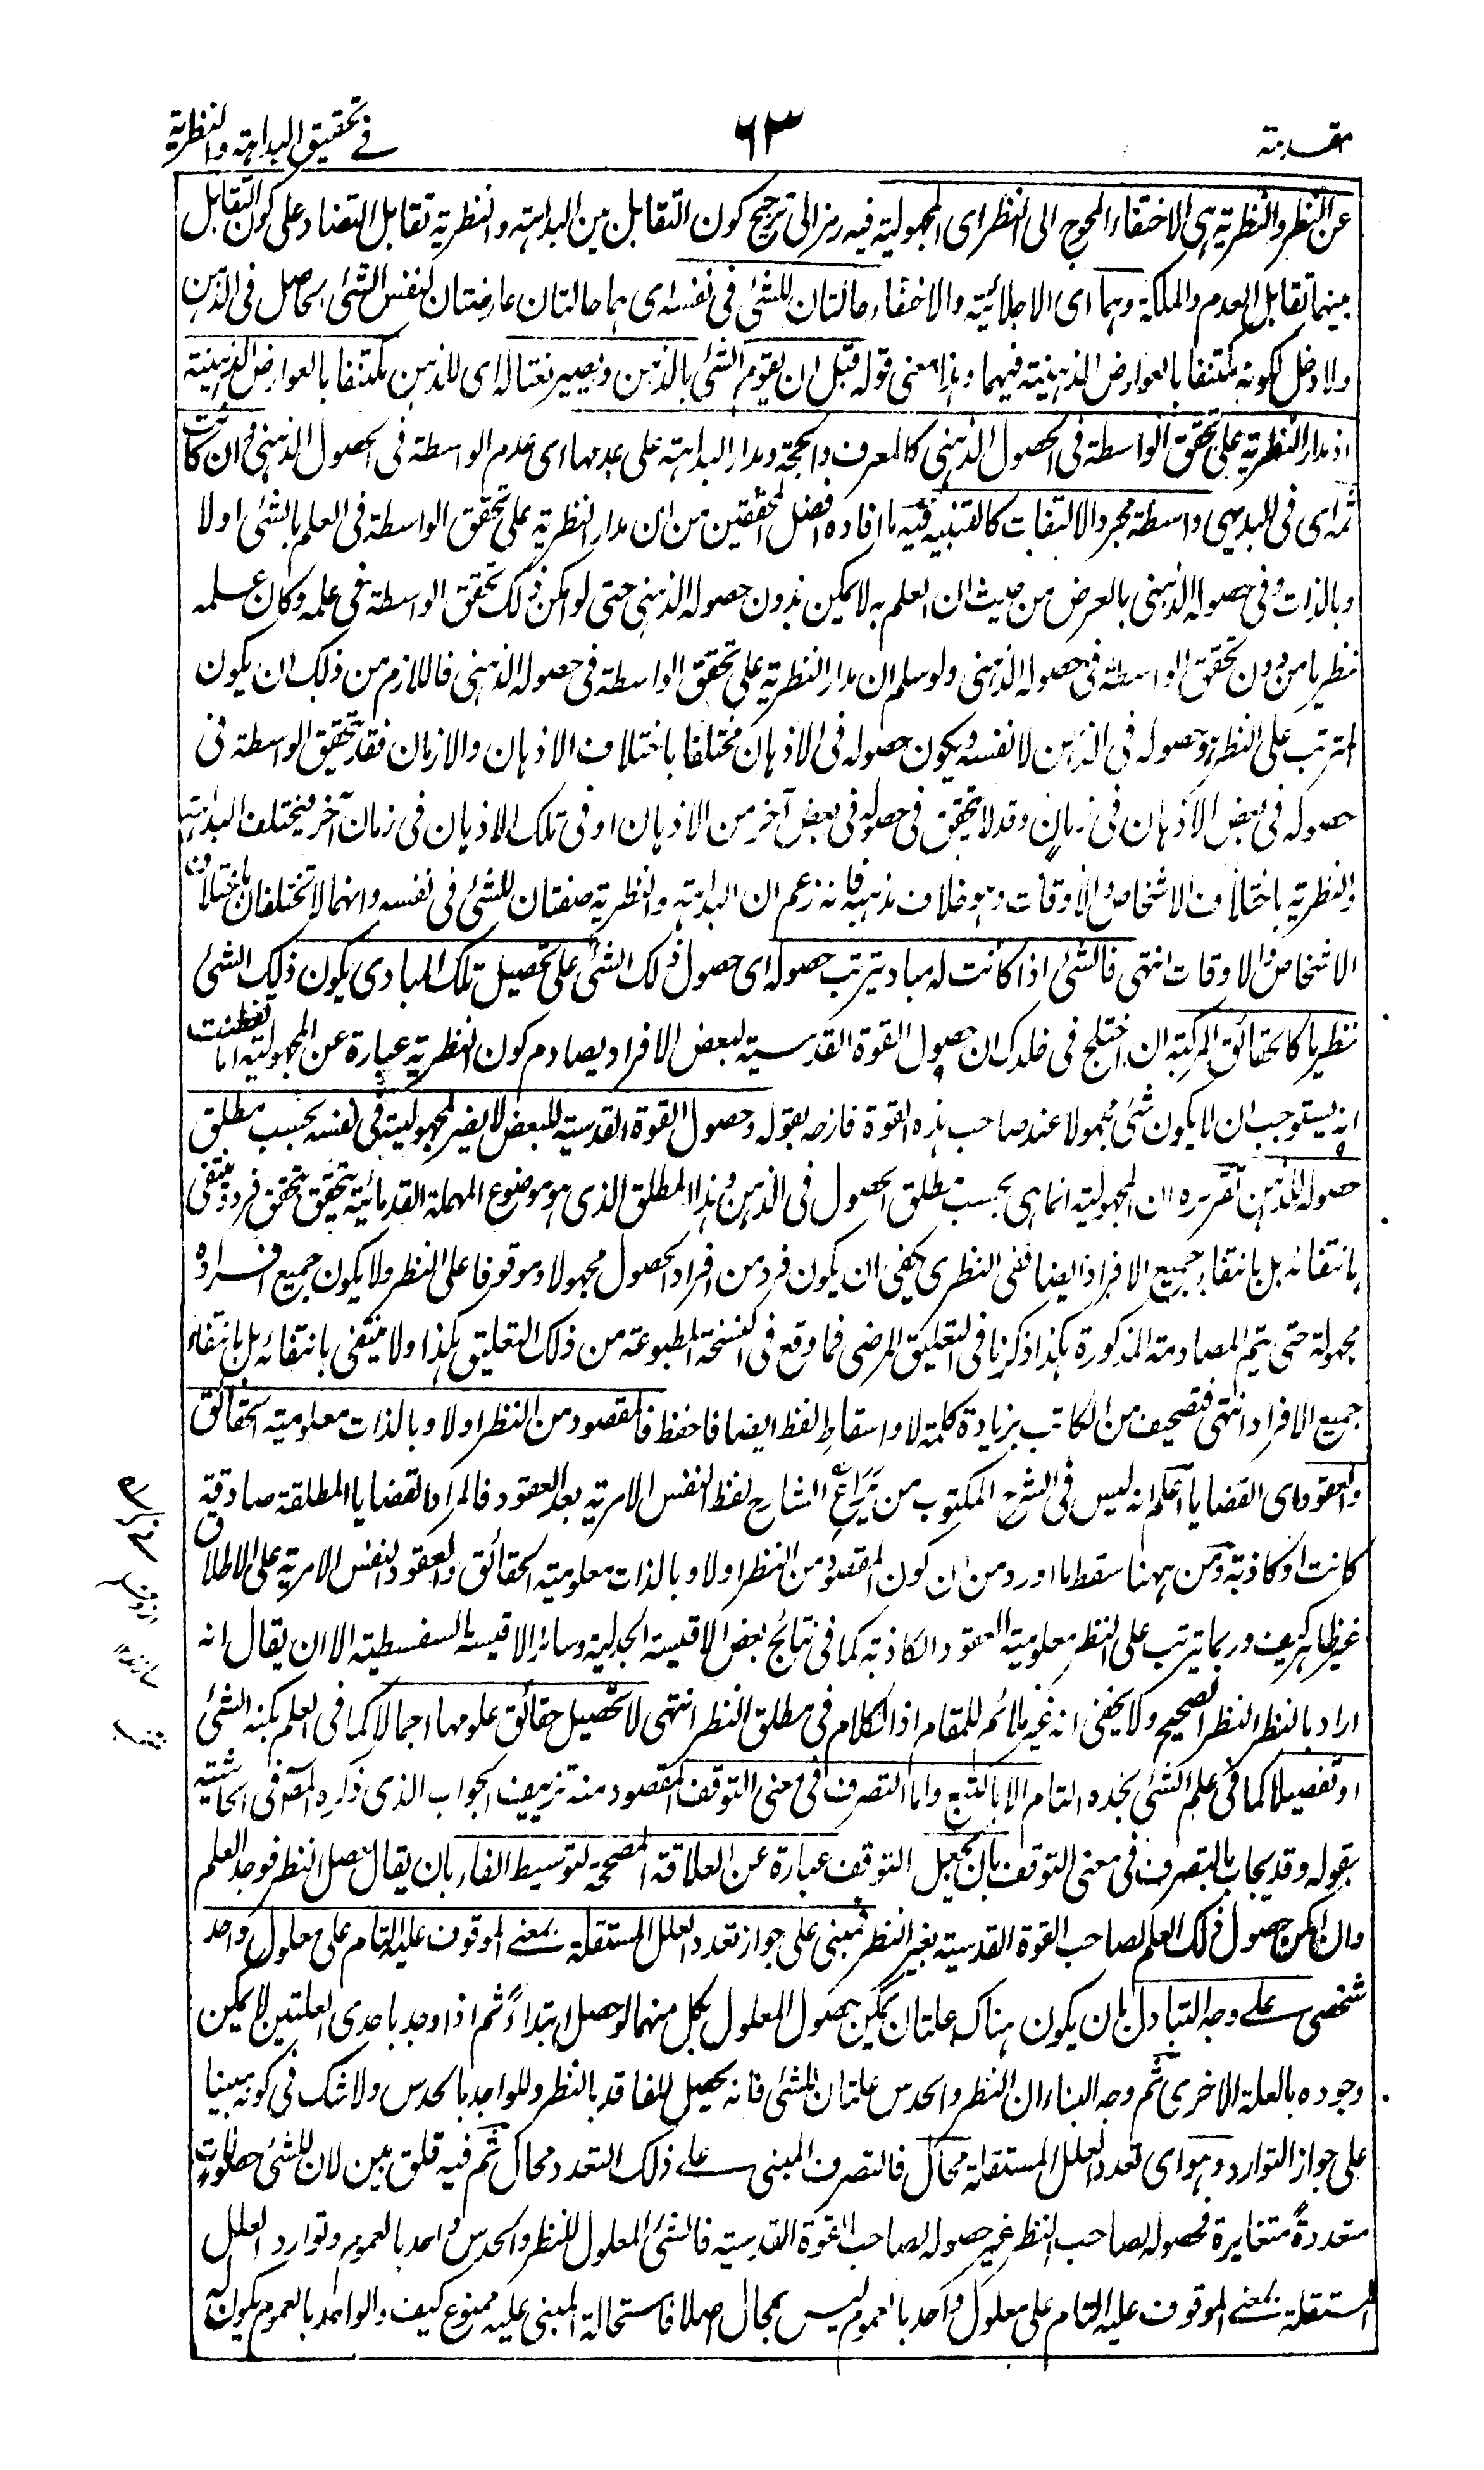 مقدمة
٦٣
في تحقيق البداهة والنظرية
عن النظر والنظرية هي الاختفاء المحوج الى النظر اى المجهولية فيه رمز الى ترجيح كون التقابل بين البداهة والنظرية تقابل التضاد على كون التقابل
بينهما تقابل العدم والملكة وهما اى الاجلائية والاخفاء حالتان للشئ فى نفسه اى هما حالتان عارضتان لنفس الشئ الحاصل فى الذهن
ولا دخل لكونه مكتنفا بالعوارض الذهنية فيهما وهذا معنى قوله قبل ان يقوم الشئ بالذهن ويصير نعتا له اى للذهن مكتنفا بالعوارض الذهنية
اذ مدار النظرية على تحقق الواسطة فى الحصول الذهنى كالمعرف والحجة ومدار البداهة على عدمها اى عدم الواسطة فى الحصول الذهنى وان كانت
ثمه اى فى البديهى واسطة مجرد الالتفات كالتنبيه فيه ما افاده افضل المحققين من ان مدار النظرية على تحقق الواسطة فى العلم بالشئ اولا
وبالذات وفى حصوله الذهنى بالعرض من حيث ان العلم به لا يمكن بدون حصوله الذهنى حتى لو امكن ذلك تحقق الواسطة فى علمه وكان علمه
نظريا من دون تحقق الواسطة فى حصوله الذهنى ولو سلم ان مدار النظرية على تحقق الواسطة فى حصوله الذهنى فاللازم من ذلك ان يكون
المترتب على النظر وحصوله فى الذهن لا نفسه ويكون حصوله فى الاذهان مختلفا باختلاف الاذهان والازمان فقد تحقق الواسطة فى
حصوله فى بعض الاذهان فى زمان وقد لا تحقق فى حصوله فى بعض آخر من الاذهان او فى تلك الاذهان فى زمان آخر فيختلف البداهة
والنظرية باختلاف الاشخاص والاوقات وهو خلاف مذهبه فانه زعم ان البداهة والنظرية صفتان للشئ فى نفسه وانهما لا تختلفان باختلاف
الاشخاص والاوقات انتهى فالشئ اذا كانت له مباد يترتب حصوله اى حصول ذلك الشئ على تحصيل تلك المبادى يكون ذلك الشئ
نظريا كالحقائق المركبة ان اختلج فى خلدك ان حصول القوة القدسية لبعض الافراد يصادم كون النظرية عبارة عن المجهولية اما تفطنت
انه يستوجب ان لا يكون شئ مجهولا عند صاحب هذه القوة فازحه بقوله وحصول القوة القدسية للبعض لا يضر لمجهوليته فى نفسه بحسب مطلق
حصوله للذهن تقريره ان المجهولية انما هى بحسب مطلق الحصول فى الذهن وهذا المطلق الذى هو موضوع المهملة القدمائية يتحقق بتحقق فرد وينتفى
بانتفائه بل بانتفاء جميع الافراد ايضا ففى النظرى يكفى ان يكون فرد من افراد الحصول مجهولا وموقوفا على النظر ولا يكون جميع افراده
مجهولة حتى يتم المصادمة المذكورة هكذا ذكرنا فى التعليق المرضى فما وقع فى النسخة المطبوعة من ذلك التعليق هكذا ولا ينتفى بانتفائه بل بانتفاء
جميع الافراد انتهى فتصحيف من الكاتب بزيادة كلمة لا واسقاط لفظ ايضا فاحفظ فالمقصود من النظر اولا وبالذات معلومية الحقائق
والعقود اى القضايا اعلم انه ليس فى الشرح المكتوب من يراع الشارح لفظ النفس الامرية بعد العقود فالمراد القضايا المطلقة صادقة
كانت او كاذبة ومن ههنا سقط ما اورد من ان كون المقصود من النظر اولا وبالذات معلومية الحقائق والعقود النفس الامرية على الاطلاق
غير ظاهر كيف وربما يترتب على النظر معلومية العقود الكاذبة كما فى نتائج بعض الاقيسة الجدلية وسائر الاقيسة السفسطية الا ان يقال انه
اراد بالنظر النظر الصحيح ولا يخفى انه غير ملائم للمقام اذ الكلام فى مطلق النظر انتهى لا تحصيل حقائق علومها اجمالا كما فى العلم بكنه الشئ
او تفصيلا كما فى علم الشئ بحده التام الا بالتبع واما التصرف فى معنى التوقف المقصود منه تزييف الجواب الذى ذكره المص فى الحاشية
بقوله وقد يجاب بالتصرف فى معنى التوقف بان يجعل التوقف عبارة عن العلاقة المصححة لتوسيط الفاء بان يقال حصل النظر فوجد العلم
وان امكن حصول ذلك العلم لصاحب القوة القدسية بغير النظر فمبنى على جواز تعدد العلل المستقلة بمعنى الموقوف عليه التام على معلول واحد
شخصى على وجه التبادل بان يكون هناك علتان يمكن حصول المعلول بكل منهما لو حصل ابتداءً ثم اذا وجد باحدى العلتين لا يمكن
وجوده بالعلة الاخرى ثم وجه البناء ان النظر والحدس علتان للشئ فانه يحصل للفاقد بالنظر وللواجد بالحدس ولا شك فى كونه مبنيا
على جواز التوارد وهو اى تعدد العلل المستقلة محال فالتصرف المبنى على ذلك التعدد محال ثم فيه قلق بين لان للشئ حصولات
متعددة متغايرة فحصوله لصاحب النظر غير حصوله لصاحب القوة القدسية فالشئ المعلول للنظر والحدس واحد بالعموم وتوارد العلل
المستقلة بمعنى الموقوف عليه التام على معلول واحد بالعموم ليس بمحال اصلا فاستحالة المبنى عليه ممنوع كيف والواحد بالعموم يكون له